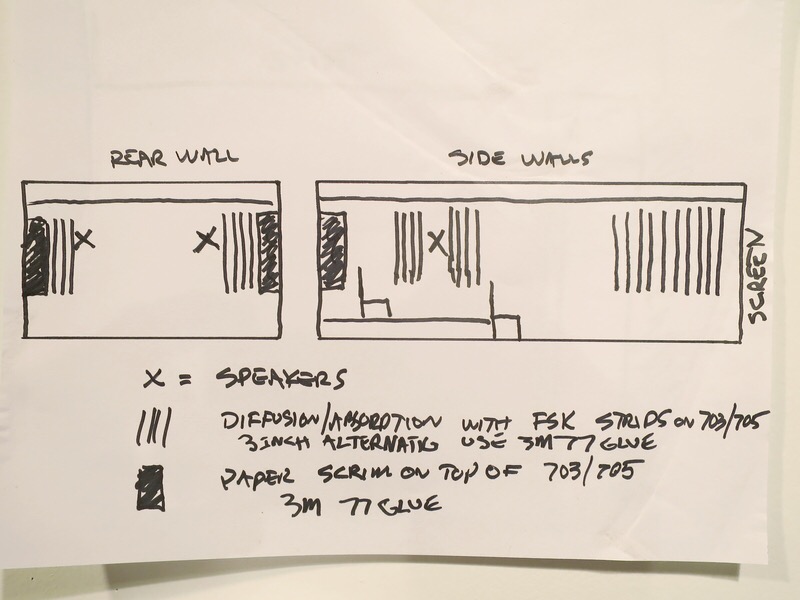 REAR WALL
SIDE WALLS
X
X
X
SCREEN
X = SPEAKERS
DIFFUSION/ABSORPTION WITH FSK STRIPS ON 703/705
3 INCH ALTERNATIG USE 3M 77 GLUE
PAPER SCRIM ON TOP OF 703/705
3M 77 GLUE